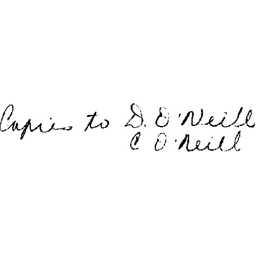 Copies to D. O'Neill
C O'Neill